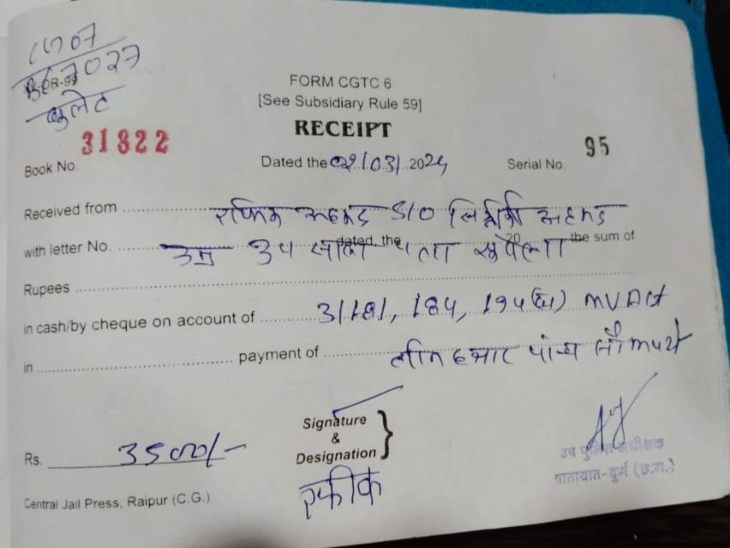 CG 07
BK 7027
बुलेट
B-DR-99
FORM CGTC 6
[See Subsidiary Rule 59]
RECEIPT
Book No. 31822 Dated the 02/03/2024 Serial No. 95
Received from रफिक अहमद S/O सिद्दीकी अहमद
with letter No. dated, the 20 the sum of
उम्र 34 साल पता सुपेला
Rupees
in cash/by cheque on account of 3/181, 184, 194(घ) MV Act
in payment of तीन हजार पांच सौ रुपये
Rs. 3500/-
Signature
&
Designation
रफीक
उप पुलिस अधीक्षक
यातायात-दुर्ग (छ.ग.)
Central Jail Press, Raipur (C.G.)